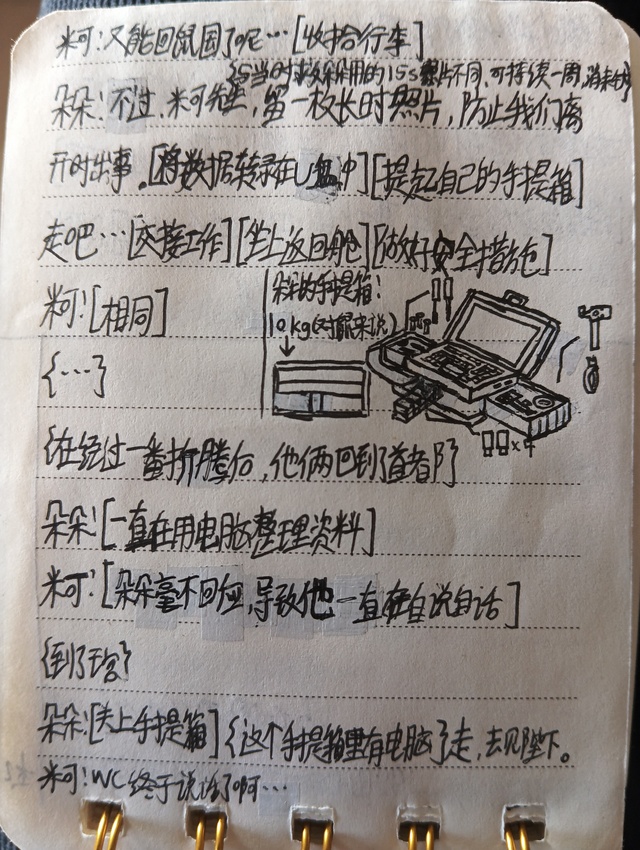 米可:又能回鼠国了呢…[收拾行李]
{与当时救朵朵用的15s照片不同,可持续一周,消耗
朵朵:不过,米可先生,留一枚长时照片,防止我们离
开时出事。[将数据转录在U盘中][提起自己的手提箱]
走吧…[交接工作][坐上返回舱][做好安全措施]
米可:[相同]
朵朵的手提箱:
10kg(对鼠来说)
{…}
×4
{在经过一番折腾后,他俩回到了首都
朵朵:[一直在用电脑整理资料]
米可:[朵朵毫不回应,导致他一直在自说自话]
{到了
朵朵:[关上手提箱]{这个手提箱里有电脑}走,去见陛下。
米可:WC终于说话了啊…